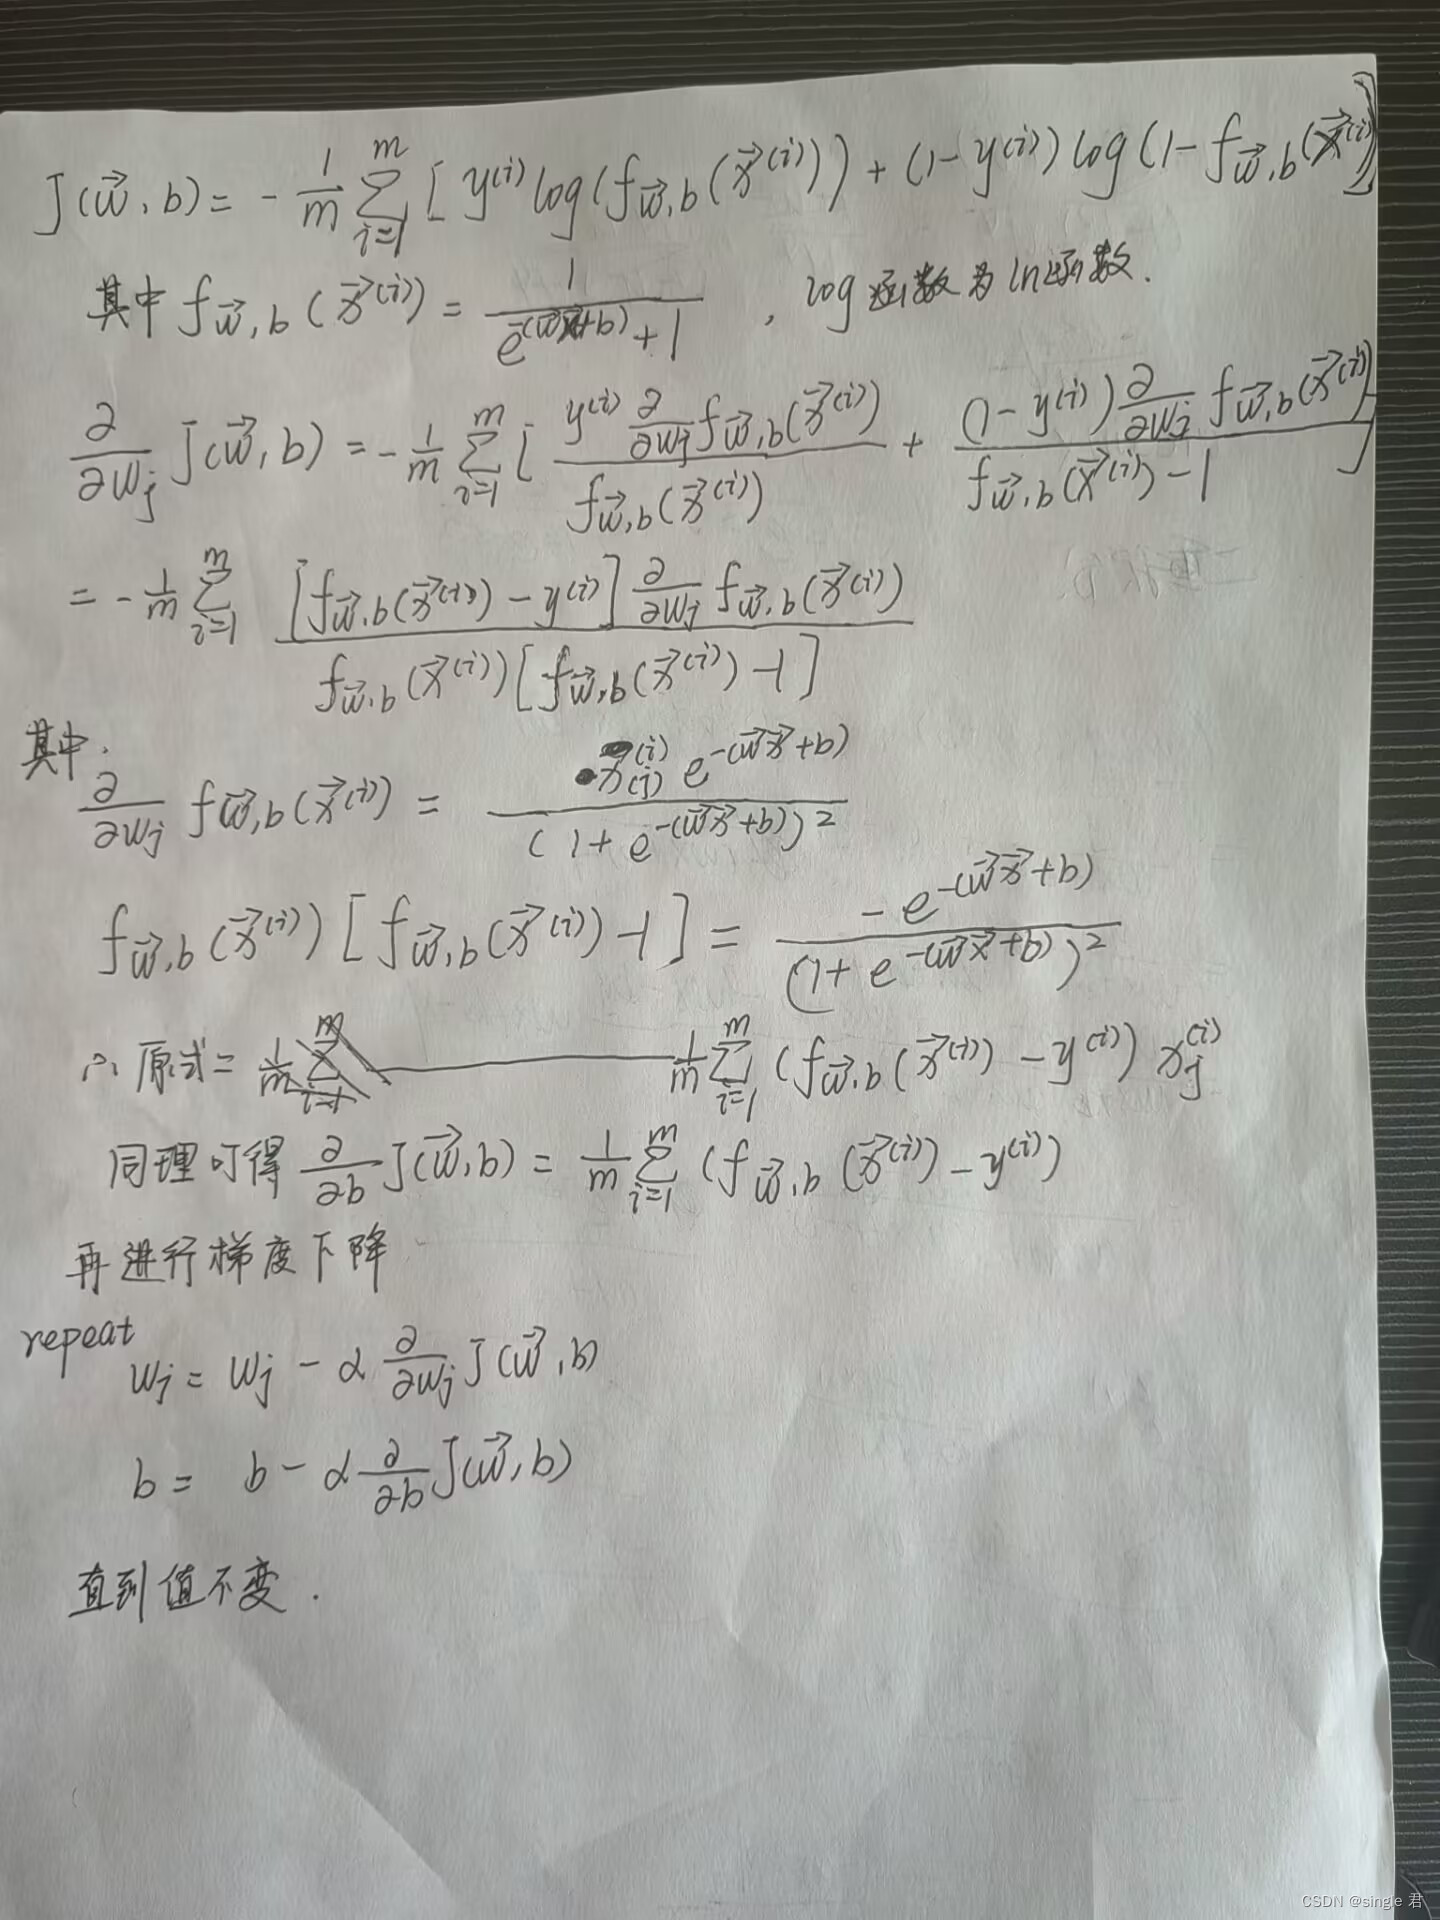 J(w⃗, b) = - 1/m Σ_{i=1}^{m} [ y^(i) log(f_{w⃗,b}(x⃗^(i))) + (1 - y^(i)) log(1 - f_{w⃗,b}(x⃗^(i)) ]
其中 f_{w⃗,b}(x⃗^(i)) = 1 / (e^{-(w⃗x⃗+b)} + 1) , log函数为ln函数.
∂/∂w_j J(w⃗, b) = - 1/m Σ_{i=1}^{m} [ y^(i) ∂/∂w_j f_{w⃗,b}(x⃗^(i)) / f_{w⃗,b}(x⃗^(i)) + (1 - y^(i)) ∂/∂w_j f_{w⃗,b}(x⃗^(i)) / (f_{w⃗,b}(x⃗^(i)) - 1) ]
= - 1/m Σ_{i=1}^{m} [f_{w⃗,b}(x⃗^(i)) - y^(i)] ∂/∂w_j f_{w⃗,b}(x⃗^(i)) / f_{w⃗,b}(x⃗^(i)) [f_{w⃗,b}(x⃗^(i)) - 1]
其中.
∂/∂w_j f_{w⃗,b}(x⃗^(i)) = x⃗_(j)^(i) e^{-(w⃗x⃗+b)} / (1 + e^{-(w⃗x⃗+b)})²
f_{w⃗,b}(x⃗^(i)) [f_{w⃗,b}(x⃗^(i)) - 1] = - e^{-(w⃗x⃗+b)} / (1 + e^{-(w⃗x⃗+b)})²
∴ 原式 = 1/m Σ_{i=1}^{m} (f_{w⃗,b}(x⃗^(i)) - y^(i)) x_j^(i)
同理可得 ∂/∂b J(w⃗, b) = 1/m Σ_{i=1}^{m} (f_{w⃗,b}(x⃗^(i)) - y^(i))
再进行梯度下降
repeat
w_j = w_j - α ∂/∂w_j J(w⃗, b)
b = b - α ∂/∂b J(w⃗, b)
直到值不变.
CSDN @single 君